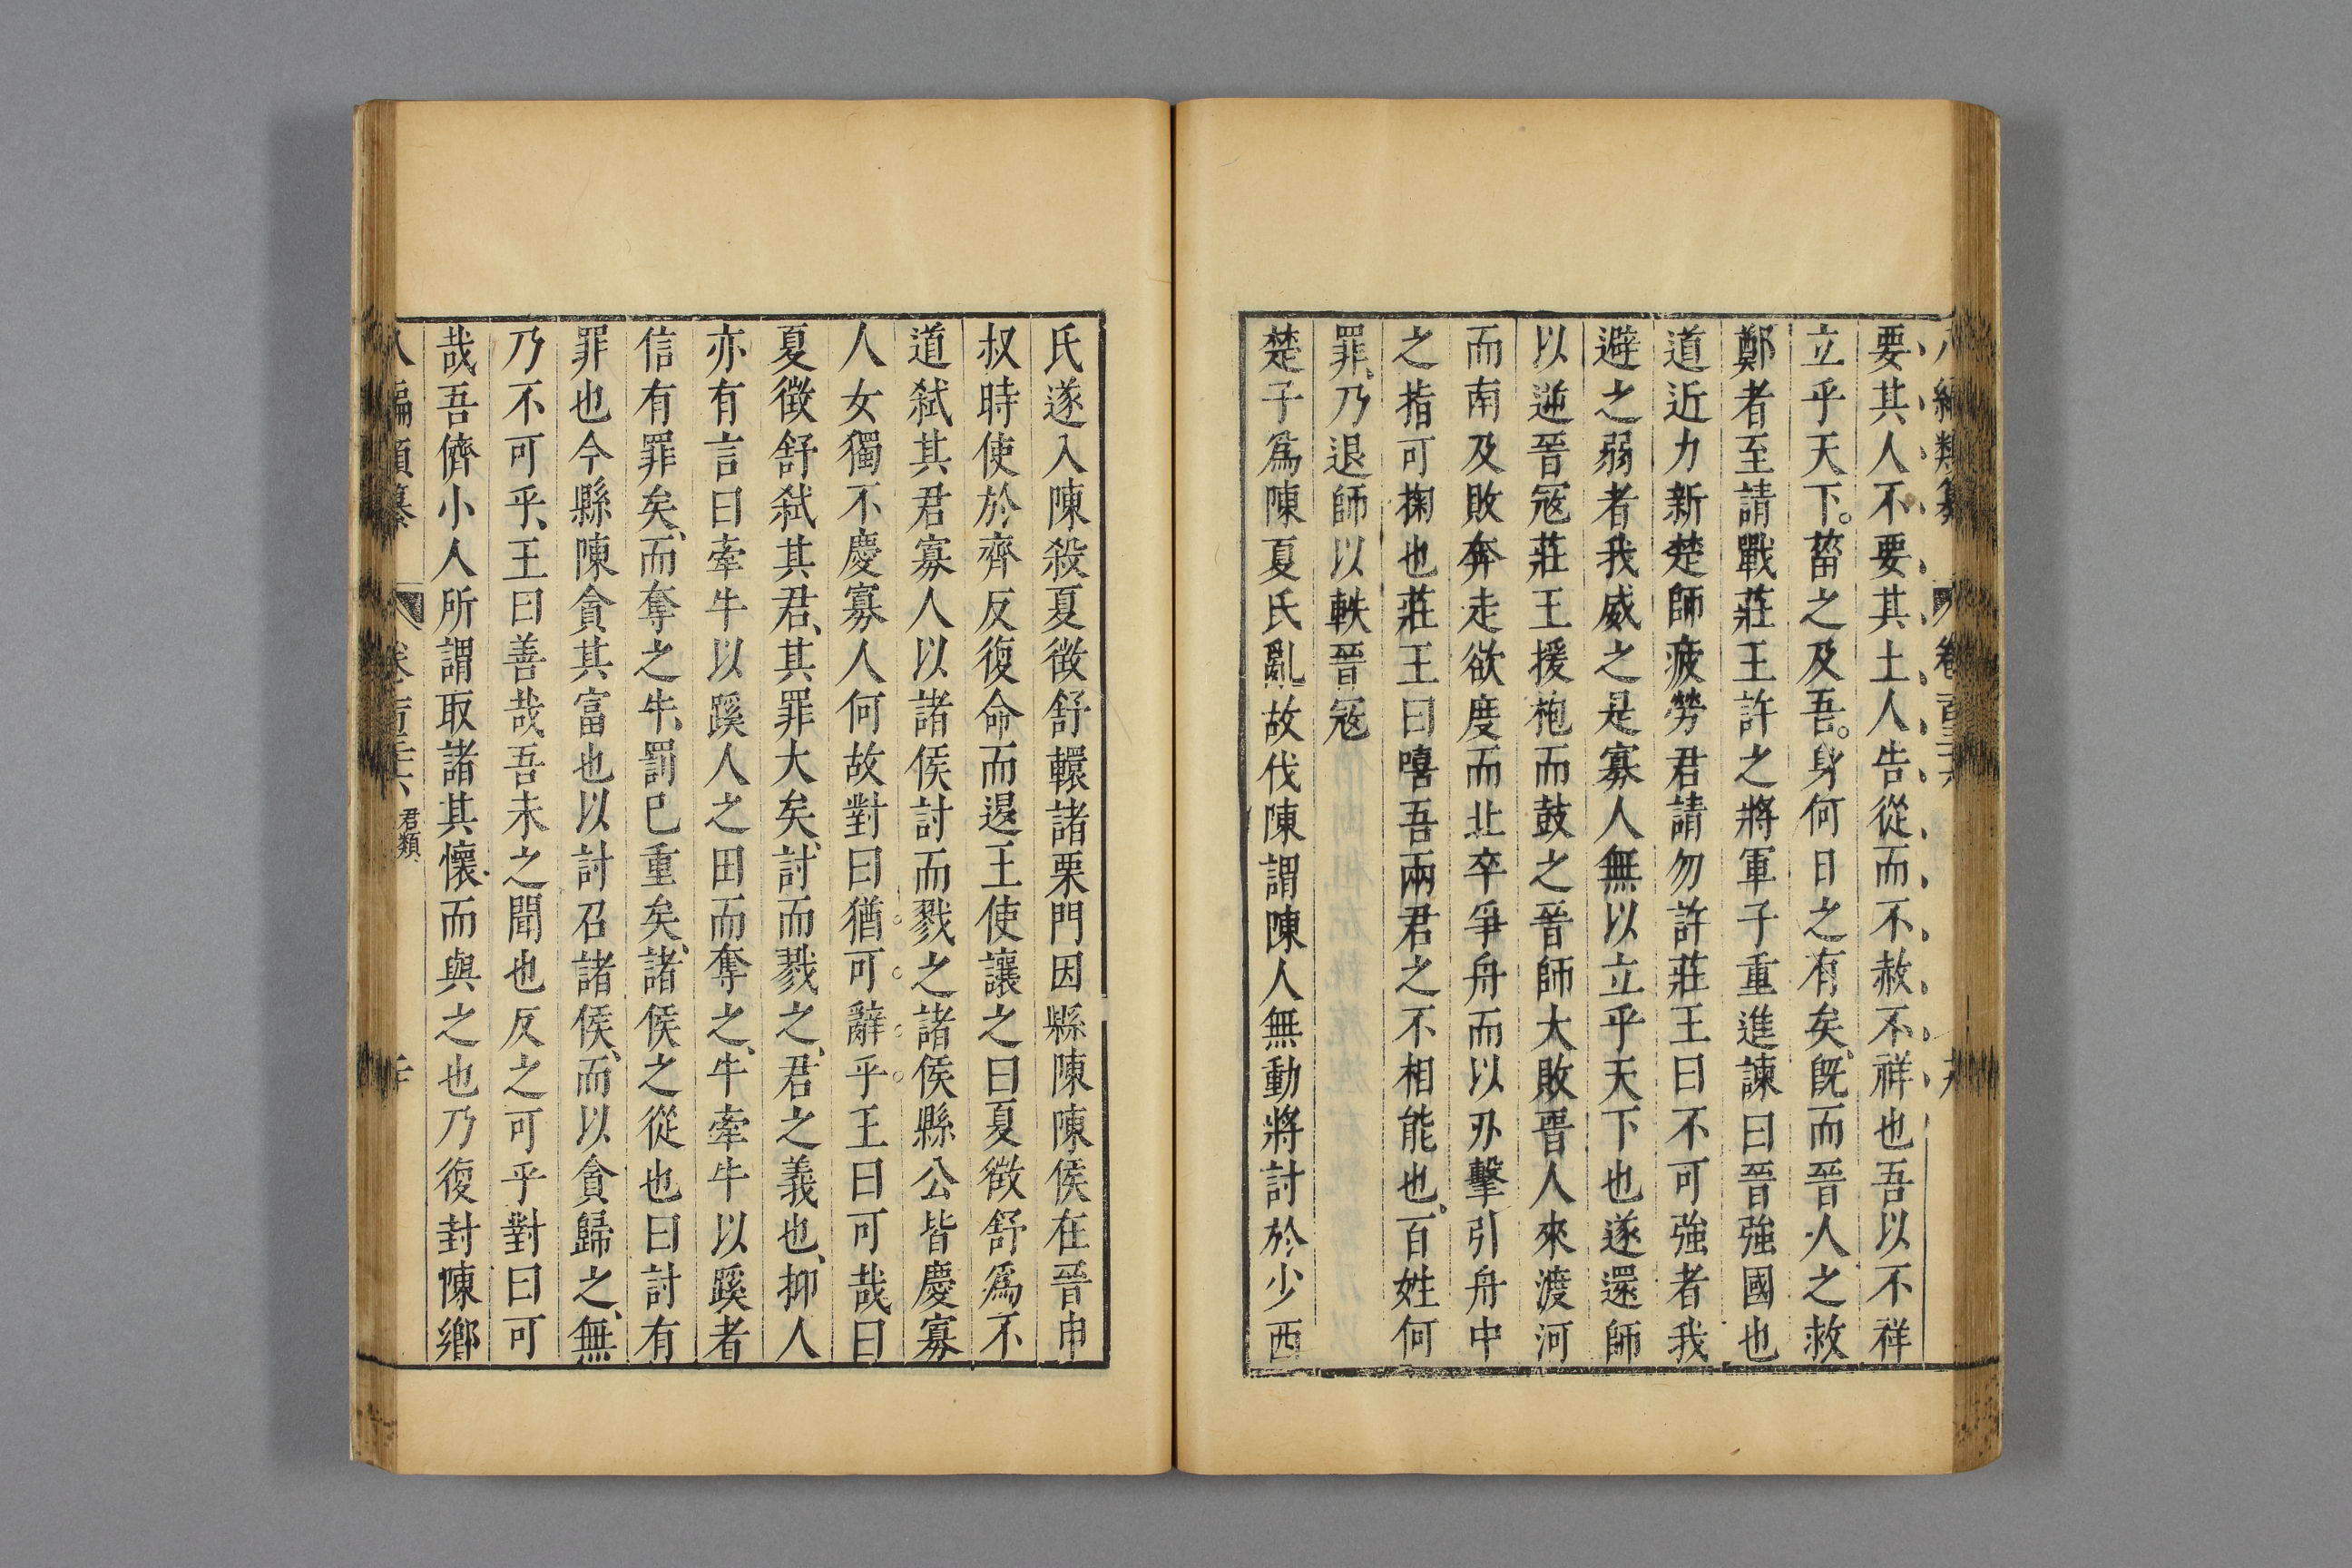 要其人不要其土人告從而不赦不祥也吾以不祥
立乎天下。菑之及吾。身何日之有矣旣而晉人之救
鄭者至請戰莊王許之將軍子重進諫曰晉強國也
道近力新楚師疲勞君請勿許莊王曰不可強者我
避之弱者我威之是寡人無以立乎天下也遂還師
以逆晉寇莊王援枹而鼓之晉師大敗晉人來渡河
而南及敗奔走欲度而北卒爭舟而以刃擊引舟中
之指可掬也莊王曰嘻吾兩君之不相能也百姓何
罪乃退師以軼晉寇
楚子爲陳夏氏亂故伐陳謂陳人無動將討於少西
氏遂入陳殺夏徵舒轘諸栗門因縣陳陳侯在晉申
叔時使於齊反復命而退王使讓之曰夏徵舒爲不
道弒其君寡人以諸侯討而戮之諸侯縣公皆慶寡
人女獨不慶寡人何故對曰猶可辭乎王曰可哉曰
夏徵舒弒其君、其罪大矣、討而戮之、君之義也、抑人
亦有言曰牽牛以蹊人之田而奪之、牛牽牛以蹊者
信有罪矣、而奪之牛、罰已重矣、諸侯之從也曰討有
罪也今縣陳貪其富也以討召諸侯、而以貪歸之、無
乃不可乎、王曰善哉吾未之聞也反之可乎對曰可
哉吾儕小人所謂取諸其懷而與之也乃復封陳鄉
八編類纂 卷百三十六 君類